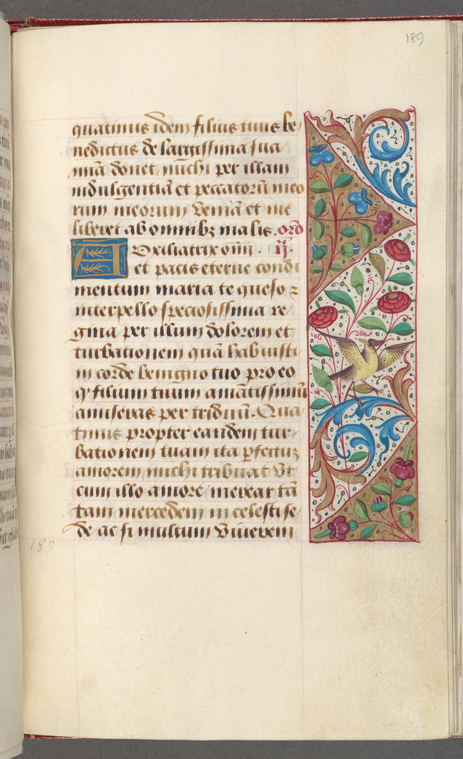 189
quatinus idem filius tuus be
nedictus de largissima sua
mīa donet michi per illam
indulgentiā et peccatorū meo
rum meorum veniā et me
liberet ab omnibz malis. ord
Auxiliatrix oīm . ij.
et pacis eterne condi
mentum maria te queso z
interpello speciosissima re
gina per illum dolorem et
turbationem quā habuisti
in corde benigno tuo pro eo
qͥ filium tuum amātissimū
amiseras per triduū. Qua
tinus propter eandem tur
bationem tuam ita perfectuz
amorem michi tribuat Ut
cum illo amore merear tā
tam mercedem in celesti se
de ac si multum viverem
189